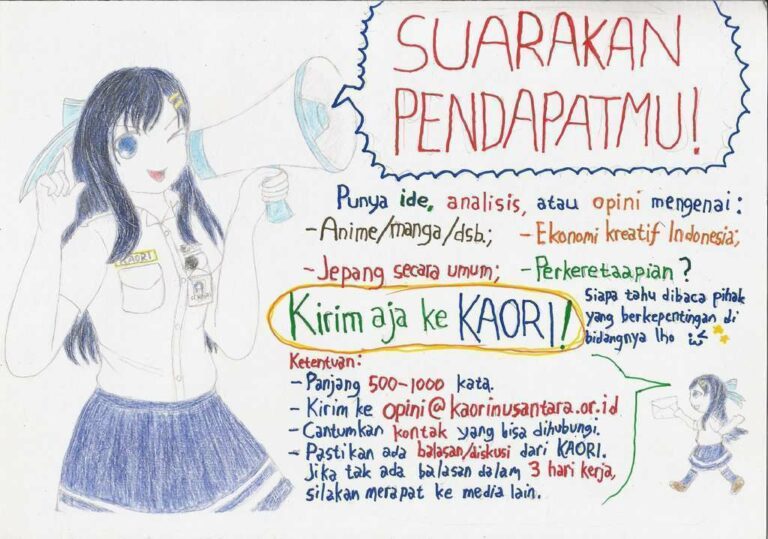 SUARAKAN
PENDAPATMU!
Punya ide, analisis, atau opini mengenai:
-Anime/manga/dsb.; -Ekonomi kreatif Indonesia;
-Jepang secara umum; -Perkeretaapian?
Kirim aja ke KAORI!
Siapa tahu dibaca pihak
yang berkepentingan di
bidangnya lho
Ketentuan:
-Panjang 500-1000 kata.
-Kirim ke opini@kaorinusantara.or.id
-Cantumkan kontak yang bisa dihubungi.
-Pastikan ada balasan/diskusi dari KAORI.
Jika tak ada balasan dalam 3 hari kerja,
silakan merapat ke media lain.
KAORI